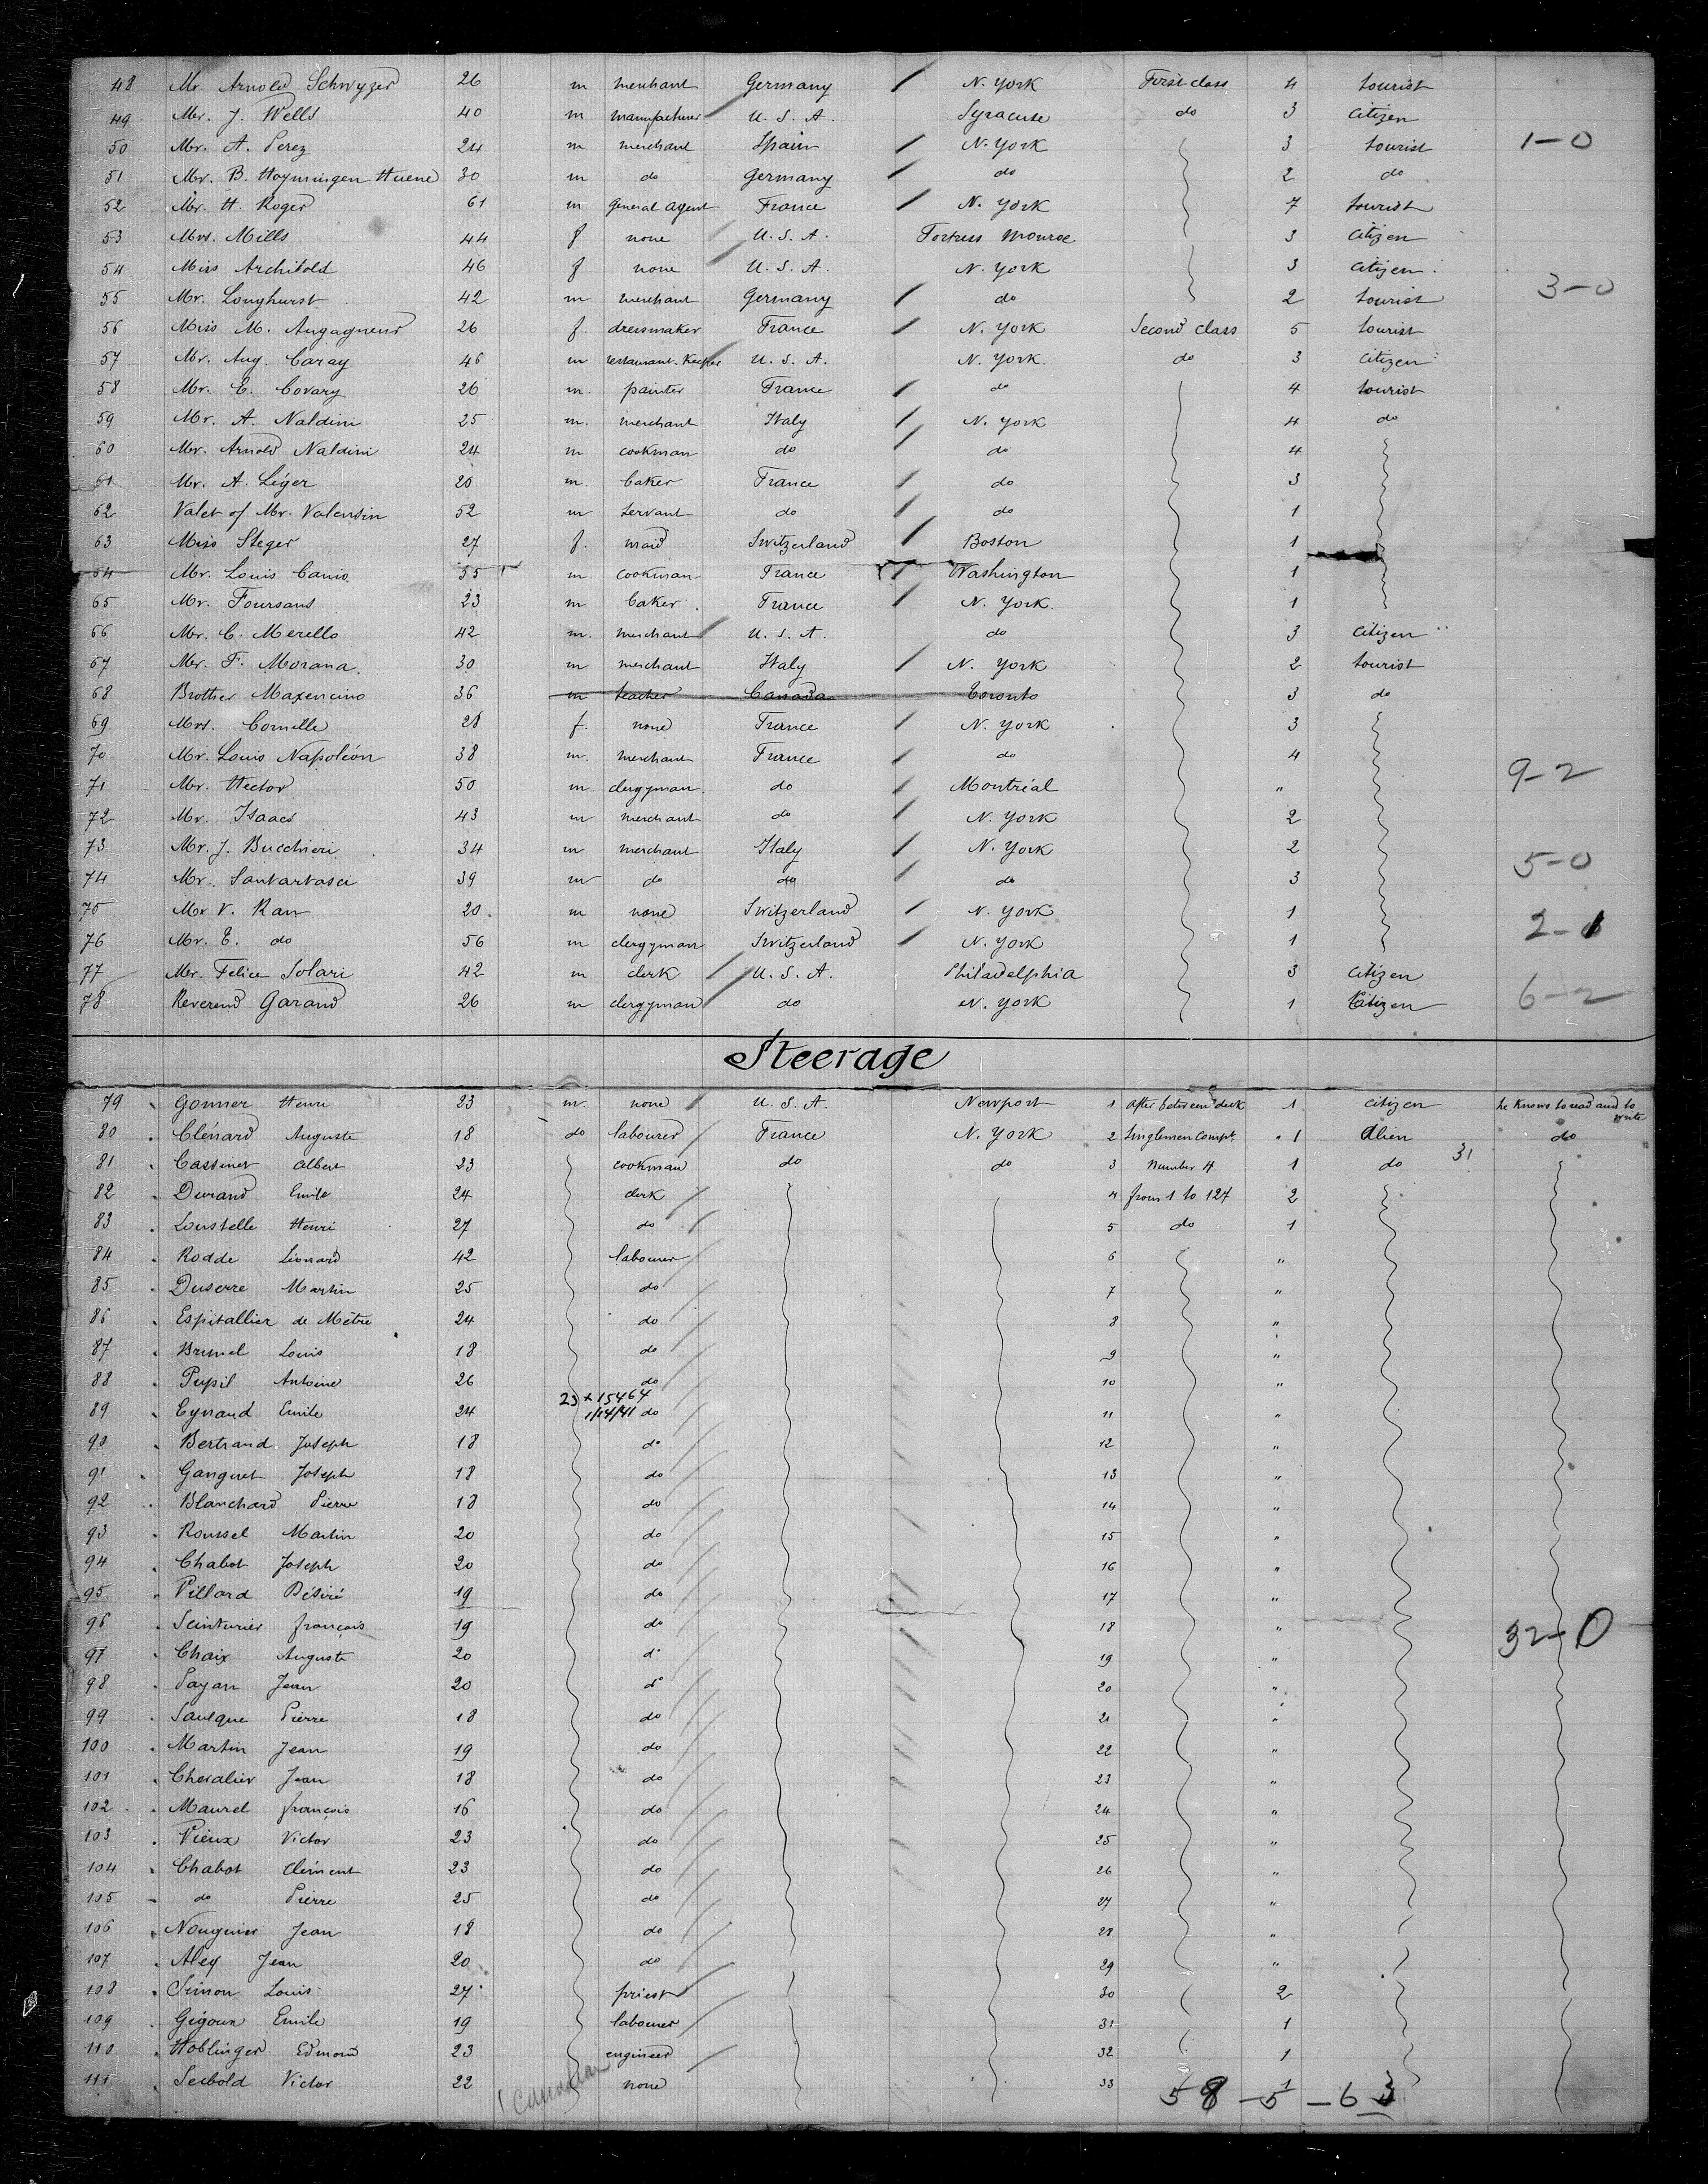 48 Mr. Arnold Schwyzer 26 m merchant Germany N. York First class 4 tourist
49 Mr. J. Wells 40 m manufacturer U. S. A. Syracuse do 3 Citizen
50 Mr. A. Perez 24 m merchant Spain N. York 3 tourist 1-0
51 Mr. B. Hoymingen Huene 30 m do Germany do 2 do
52 Mr. H. Roger 61 m general agent France N. York 7 tourist
53 Mrs. Mills 44 f none U. S. A. Fortress Monroe 3 Citizen
54 Miss Archibold 46 f none U. S. A. N. York 3 Citizen
55 Mr. Longhurst 42 m merchant Germany do 2 tourist 3-0
56 Miss M. Augagneur 26 f. dressmaker France N. York Second class 5 tourist
57 Mr. Aug. Caray 46 m restaurant-Keeper U. S. A. N. York. do 3 Citizen
58 Mr. E. Covary 26 m. painter France do 4 tourist
59 Mr. A. Naldini 25 m. merchant Italy N. York 4 do
60 Mr. Arnold Naldini 24 m cookman do do 4
61 Mr. A. Léger 20 m. baker France do 3
62 Valet of Mr. Valensin 52 m servant do do 1
63 Miss Steger 27 f. maid Switzerland Boston 1
64 Mr. Louis Canio 35 m cookman France Washington 1
65 Mr. Foursans 23 m baker France N. York. 1
66 Mr. C. Merello 42 m. merchant U. S. A. do 3 Citizen
67 Mr. F. Morana 30 m merchant Italy N. York 2 tourist
68 Brother Maxencino 36 m teacher Canada Toronto 3 do
69 Mrs. Cornille 28 f. none France N. York 3
70 Mr. Louis Napoléon 38 m. merchant France do 4
71 Mr. Hector 50 m. clergyman. do Montréal " 9-2
72 Mr. Isaacs 43 m merchant do N. York 2
73 Mr. J. Bucchieri 34 m merchant Italy N. York 2
74 Mr. Santartasci 39 m do do do 3 5-0
75 Mr V. Rau 20. m none Switzerland N. York 1
76 Mr. E. do 56 m clergyman Switzerland N. York 1
77 Mr. Felice Solari 42 m clerk U. S. A. Philadelphia 3 Citizen
78 Reverend Garand 26 m clergyman do N. York 1 Citizen 6-2
Steerage
79 Gonner Henri 23 m. none U. S. A. Newport 1 after between deck 1 Citizen he Knows to read and to write
80 Clénard Auguste 18 do labourer France N. York 2 Singlemen Compt. 1 Alien do
81 Cassiner Albert 23 cookman do do 3 Number 4 1 do 31
82 Durand Emile 24 clerk 4 from 1 to 127 2
83 Loustelle Henri 27 do 5 do 1
84 Rodde Léonard 42 labourer 6 "
85 Duserre Martin 25 do 7 "
86 Espitallier de Mètre 24 do 8 "
87 Brunel Louis 18 do 9 "
88 Pupil Antoine 26 do 10 "
23 x 15464
89 Eynaud Emile 24 1/14/41 do 11 "
90 Bertrand Joseph 18 do 12 "
91 Ganguet Joseph 18 do 13 "
92 Blanchard Pierre 18 do 14 "
93 Roussel Martin 20 do 15 "
94 Chabot Joseph 20 do 16 "
95 Pillard Désiré 19 do 17 "
96 Seinturier françois 19 do 18 " 32-0
97 Chaix Auguste 20 do 19 "
98 Payan Jean 20 do 20 "
99 Saulque Pierre 18 do 21 "
100 Martin Jean 19 do 22 "
101 Chevalier Jean 18 do 23 "
102 Maurel françois 16 do 24 "
103 Vieux Victor 23 do 25 "
104 Chabot Clément 23 do 26 "
105 do Pierre 25 do 27 "
106 Nouguier Jean 18 do 28 "
107 Aley Jean 20 do 29 "
108 Simon Louis 27 priest 30 2
109 Gigoux Emile 19 labourer 31 1
110 Hoblinger Edmond 23 engineer 32 1
111 Seibold Victor 22 none 33 1
1 Canadian
58-5-63